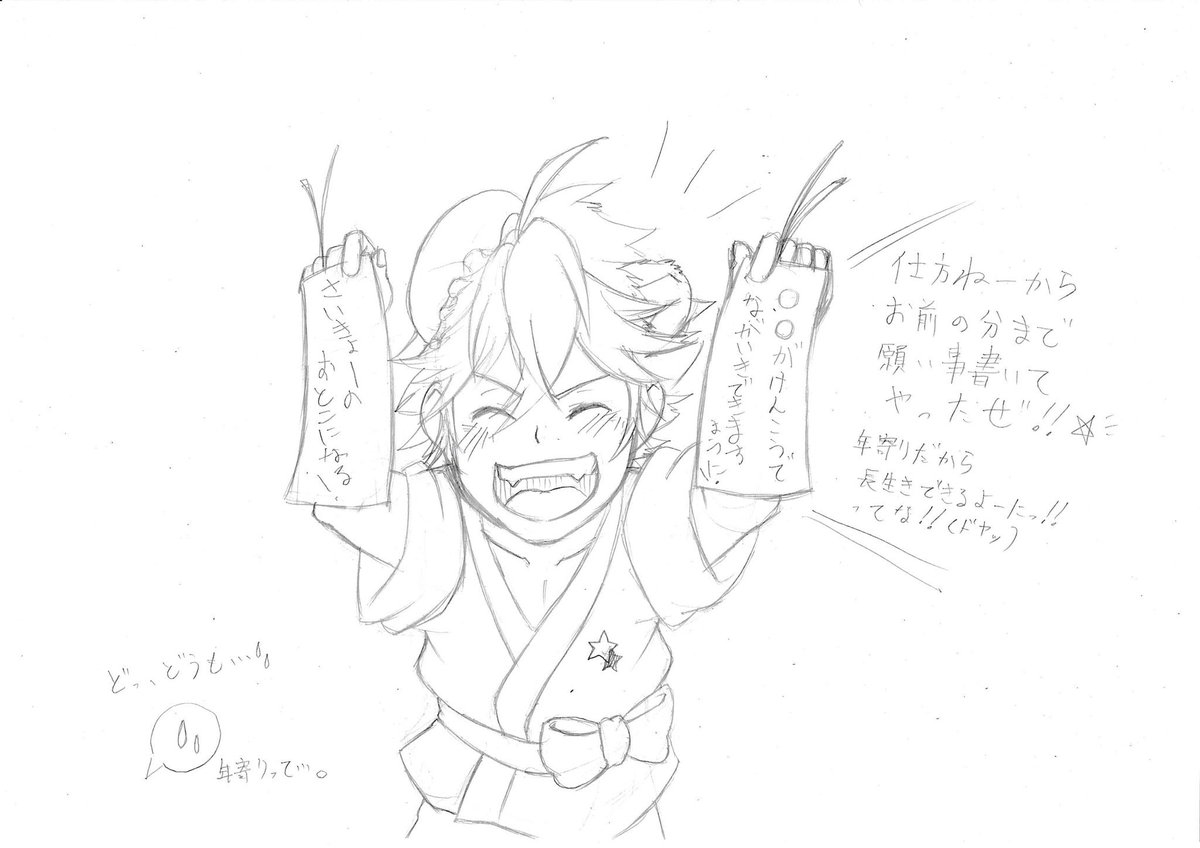 さいきょーの
おとこになる!
○○がけんこうで
ながいきできます
ように!
仕方ねーから
お前の分まで
願い事書いて
やったぜ!!☆
年寄りだから
長生きできるよーにっ!!
ってな!!(ドヤッ)
どっ、どうも…
年寄りって…。